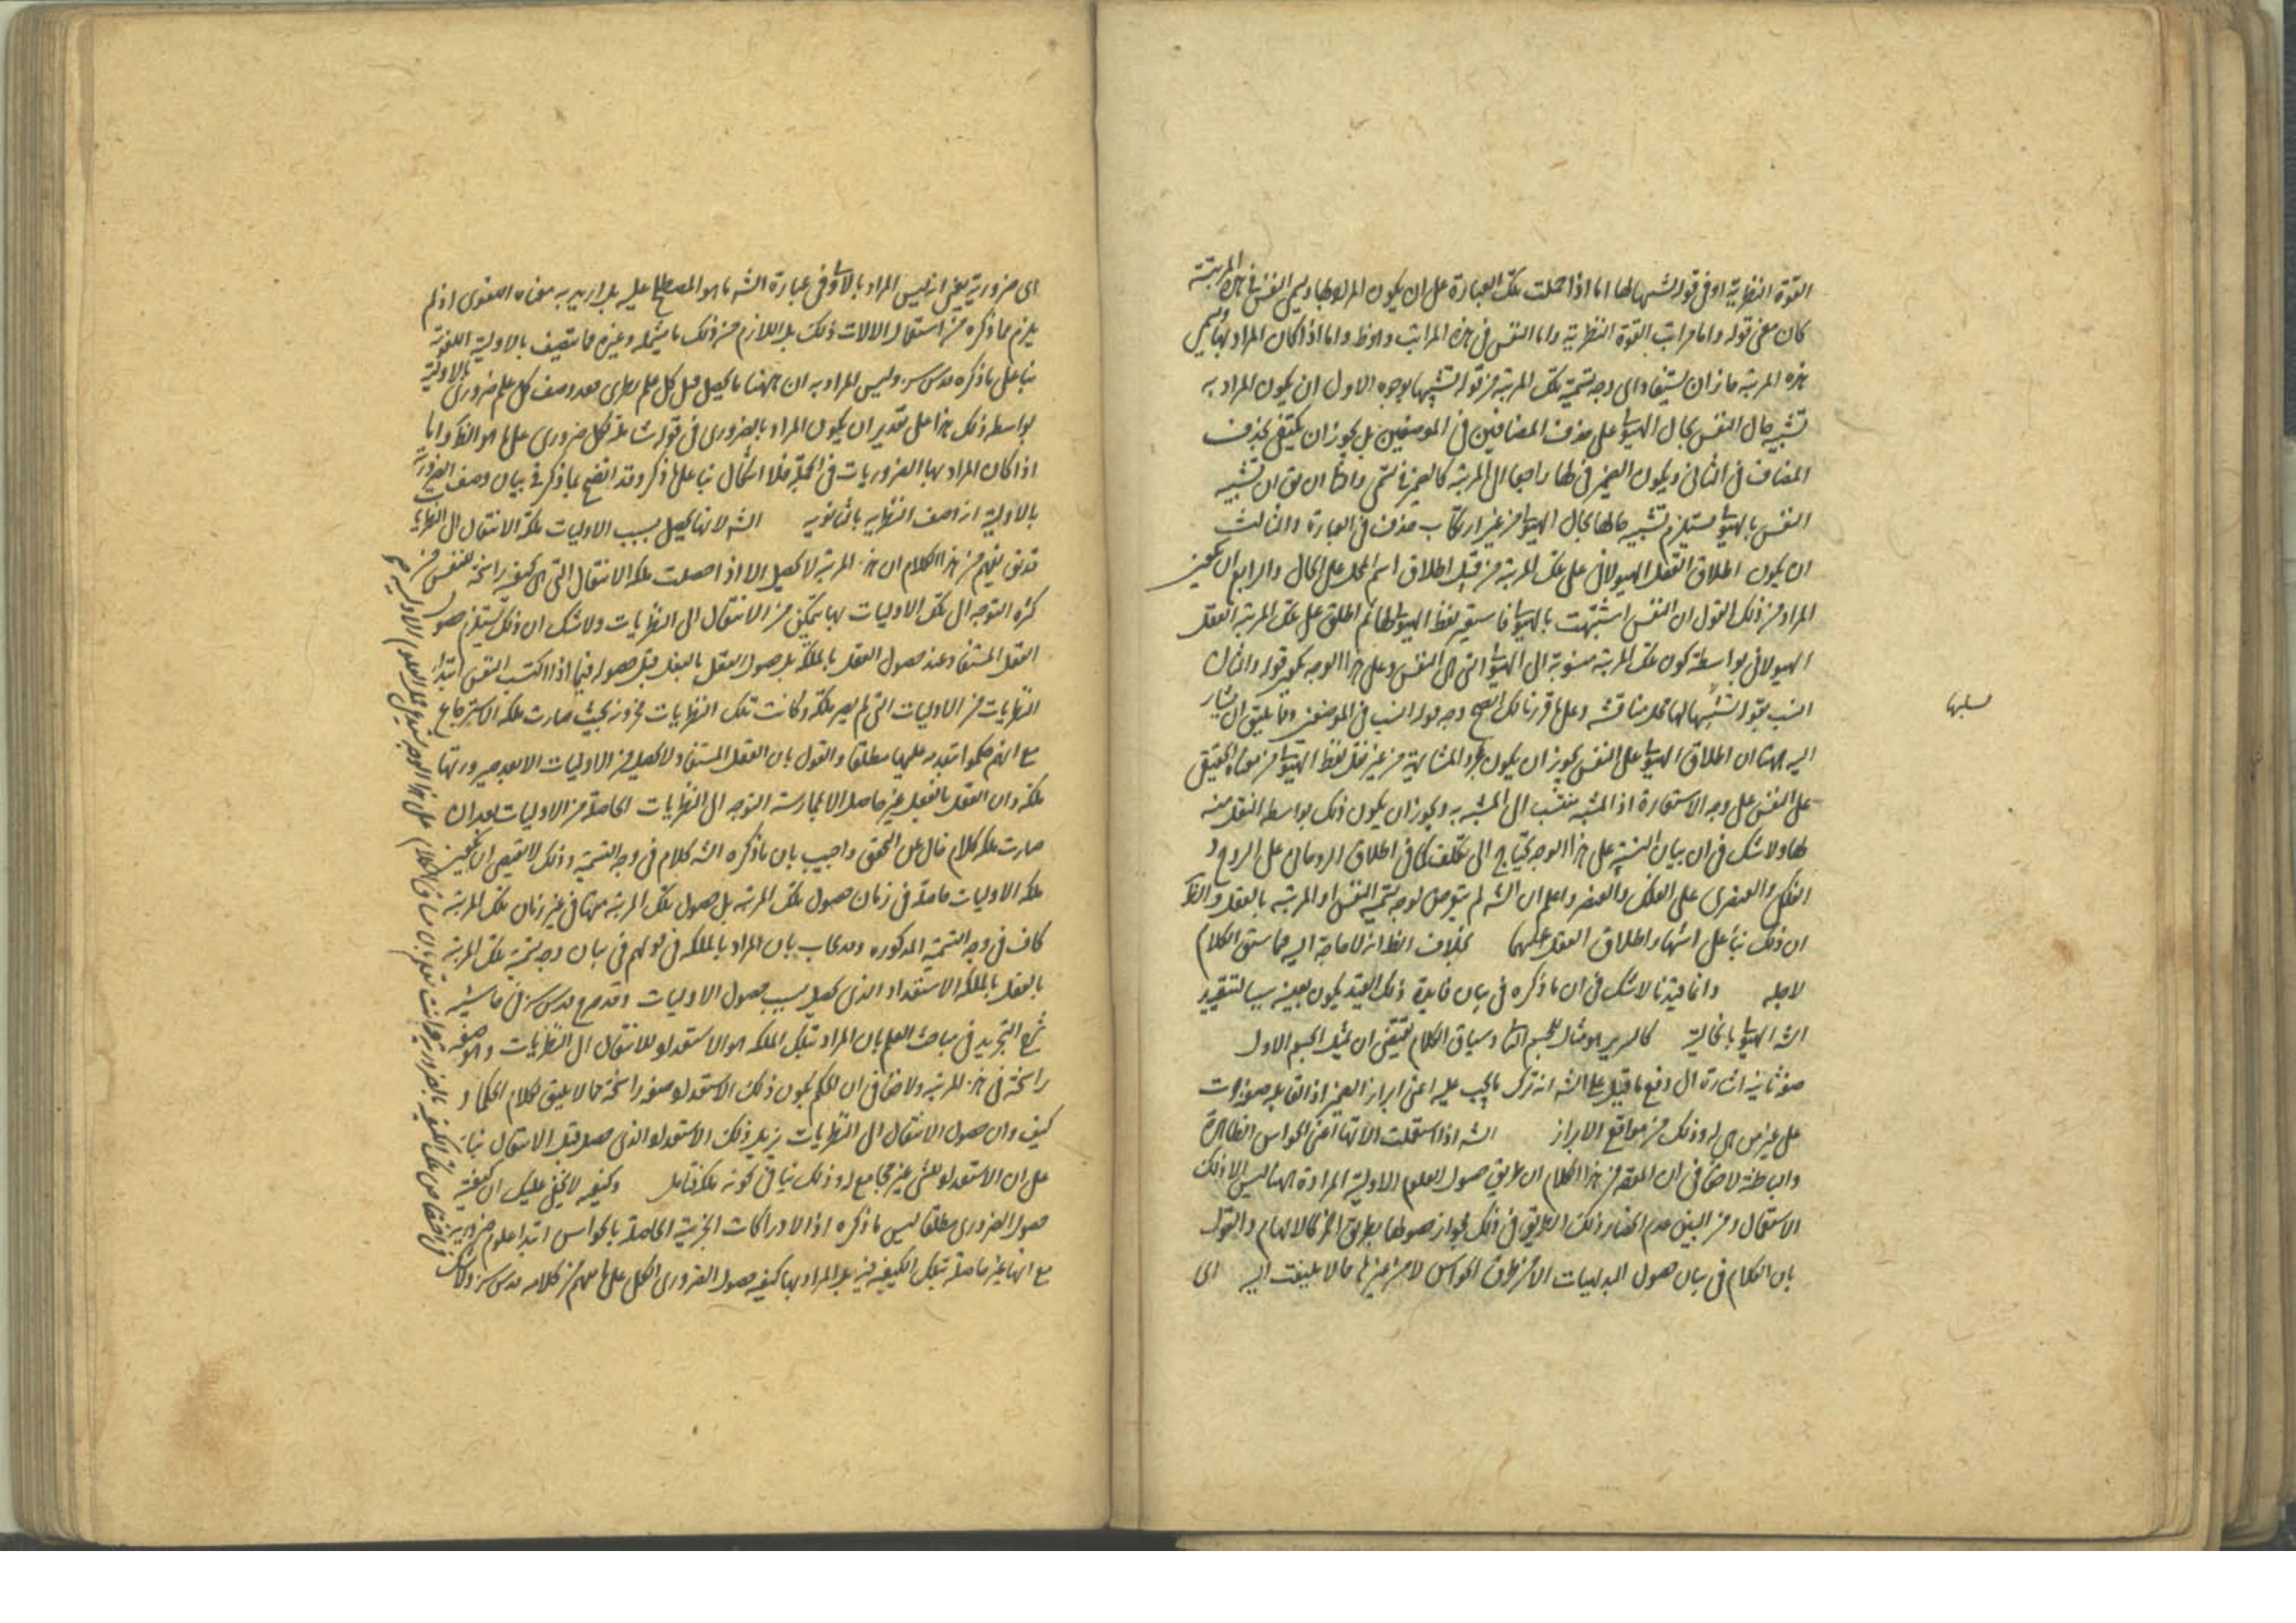 القوة النظرية او فى قوله لشبهها لها اما اذا حملت تلك العبارة على ان يكون المراد بها ويسمى النفس فى هذه المرتبة
كان معنى قوله واما مراتب القوة النظرية واما النفس فى هذه المراتب وهو ظ واما اذا كان المراد بها يسمى
هذه المرتبة جاز ان يستفاد اى وجه تسمية تلك المرتبة من قوله لشبهها بوجوه الاول ان يكون المراد به
تشبيه حال النفس بحال الهيولى على حذف المضافين فى الموضعين بل يجوز ان يكتفى بحذف
المضاف فى الثانى ويكون الضمير فى لها راجعا الى المرتبة كالضمير فى تسمى وايضا ان تشبيه
النفس بالهيولى يستلزم تشبيه حالها بحال الهيولى من غير ارتكاب حذف فى العبارة والثالث
ان يكون اطلاق العقل الهيولانى على تلك المرتبة من قبيل اطلاق اسم المحل على الحال والرابع ان يكون
المراد من ذلك القول ان النفس اشبهت بالهيولى فاستعير لفظ الهيولى لها ثم اطلق على تلك المرتبة العقل
الهيولانى بواسطة كون تلك المرتبة منسوبة الى الهيولى التى هى النفس وعلى هذا الوجه يكون قوله والثالث
انسب بقوله لشبهها لها محل مناقشة وعلى ما قررنا لك اتضح وجه قوله انسب فى الموضعين ومما يليق ان يشار
اليه ههنا ان اطلاق الهيولى على النفس يجوز ان يكون لمجرد المشابهة من غير نقل لفظ الهيولى من معناه الحقيقى
على النفس على وجه الاستعارة اذ المشبه ينتسب الى المشبه به ويجوز ان يكون ذلك بواسطة النقل منه
لها ولا شك فى ان بيان النسبة على هذا الوجه يحتاج الى تكلف كما فى اطلاق الروحانى على الروح و
الفلكى والعنصرى على الفلك والعنصر واعلم ان الشه لم يتعرض لوجه تسمية النفس او المرتبة بالعقل والظ
ان ذلك بناء على اشتهار اطلاق العقل عليهما بخلاف الظ انه لا حاجة اليه فيما سبق الكلام
لاجله وانما قيدنا لا شك فى ان ما ذكره فى بيان فايدة ذلك القيد يكون بعينه سببا لتقييد
الشه الهيولى بالخالية كالسرير هو مثال للجسم الثانى وسياق الكلام يقتضى ان يمثل الجسم الاول
صفة ثانية اشارة الى دفع ما قيل على الشه انه ترك ما يجب عليه اعنى ابراز الضمير اذ القابل صفة جرت
على غير من هى له وذلك من مواقع الابراز الشه اذا استعملت الاتها اعنى الحواس الظاهرة
والباطنة لا خفا فى ان المفهوم من هذا الكلام ان طريق حصول العلوم الاولية المرادة ههنا ليس الا ذلك
الاستعمال ومن البين عدم انحصار ذلك الطريق فى ذلك لجواز حصولها بطريق اخر كالالهام والقول
بان الكلام فى بيان حصول البديهيات الا من طرق الحواس لا من غيرها مما لا يلتفت اليه اى
لسلبها
اى ضرورية يعنى انه ليس المراد بالاولى فى عبارة الشه ما هو المصطلح عليه بل اريد به معناه اللغوى اذ لم
يلزم مما ذكره من استعمال الالات ذلك بل اللازم من ذلك ما يشمله وغيره مما يتصف بالاولية اللغوية
بناء على ما ذكره قدس سره وليس المراد به ان ههنا ما يحصل قبل كل علم نظرى بعد وصف كل علم ضرورى بالاولية
بواسطة ذلك هذا على تقدير ان يكون المراد بالضرورى فى قوله شاملة لكل ضرورى على ما هو الظ واما
اذا كان المراد بها الضروريات فى الجملة فلا اشكال بناء على ما ذكر وقد اتضح بما ذكر فى بيان وصف الضرورية
بالاولية انه اصف النظرية بالثانوية الشه لانها يحصل بسبب الاوليات ملكة الانتقال الى النظريات
قد يفهم من هذا الكلام ان هذه المرتبة لا يحصل الا اذا حصلت ملكة الانتقال التى هى كيفية راسخة للنفس من
كثرة التوجه الى تلك الاوليات بها يتمكن من الانتقال الى النظريات ولا شك ان ذلك يستلزم حصول
العقل المستفاد عند حصول العقل بالملكة بل حصول العقل بالفعل قبل حصوله فيما اذا اكتسب النفس ابتداء
النظريات من الاوليات التى لم يصر ملكة وكانت تلك النظريات مخزونة بحيث صارت ملكة الاسترجاع
مع انهم حكموا بتقدمه عليهما مطلقا والقول بان العقل المستفاد لا يحصل من الاوليات الا بعد صيرورتها
ملكة وان العقل بالفعل غير حاصل الا بممارسة التوجه الى النظريات الحاصلة من الاوليات بعد ان
صارت ملكة كلام خال عن التحقق واجيب بان ما ذكره الشه كلام فى وجه التسمية وذلك لا يقتضى ان يكون
ملكة الاوليات حاصلة فى زمان حصول تلك المرتبة بل حصول تلك المرتبة منها فى غير زمان تلك المرتبة
كاف فى وجه التسمية المذكورة وقد يجاب بان المراد بالملكة فى قولهم فى بيان وجه تسمية تلك المرتبة
بالعقل بالملكة الاستعداد الذى يحصل بسبب حصول الاوليات وقد صرح قدس سره فى حاشية
شرح التجريد فى مباحث العلم بان المراد بتلك الملكة هو الاستعداد للانتقال الى النظريات وهو صفة
راسخة فى هذه المرتبة ولا خفا فى ان الحكم بكون ذلك الاستعداد صفة راسخة مما لا يليق بكلام الحكماء
كيف وان حصول الانتقال الى النظريات يزيل ذلك الاستعداد الذى حصل قبل الانتقال بناء
على ان الاستعداد للشئ غير مجامع له وذلك ينافى كونه ملكة فتامل وكيفية لا يخفى عليك ان كيفية
حصول الضرورى مطلقا ليس ما ذكره اذ الادراكات الجزئية الحاصلة بالحواس ابتداء علوم ضرورية
مع انها غير حاصلة بتلك الكيفية فيه بل المراد بها كيفية حصول الضرورى الكلى على ما يفهم من كلامه قدس سره ولا شك
فى اختصاص تلك الكيفية بالضرورية